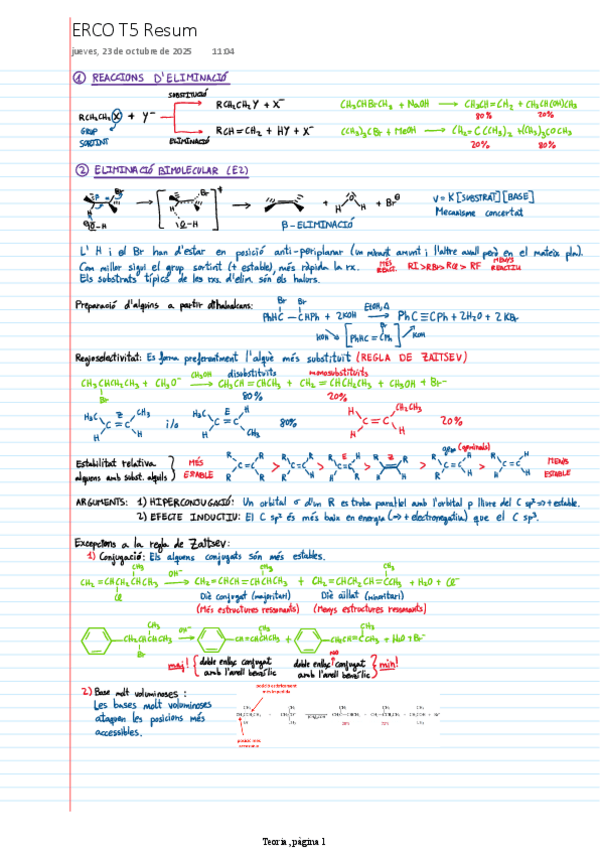 ERCO T5 Resum
jueves, 23 de octubre de 2025 11:04
① REACCIONS D'ELIMINACIÓ
SUBSTITUCIÓ
RCH₂CH₂X + Y⁻
RCH₂CH₂Y + X⁻
GRUP SORTINT
ELIMINACIÓ
RCH=CH₂ + HY + X⁻
CH₃CHBrCH₃ + NaOH → CH₃CH=CH₂ + CH₃CH(OH)CH₃
80% 20%
(CH₃)₃CBr + MeOH → CH₂=C(CH₃)₂ + (CH₃)₃COCH₃
20% 80%
② ELIMINACIÓ BIMOLECULAR (E2)
β-ELIMINACIÓ
V = K[SUBSTRAT][BASE]
Mecanisme concertat
L' H i el Br han d'estar en posició anti-periplanar (un mirant amunt i l'altre avall però en el mateix pla).
Com millor sigui el grup sortint (+ estable), més ràpida la rx. MÉS REACT. RI>RBr>RCl>RF MENYS REACTIU
Els substrats típics de les rxs. d'elim. són els halurs.
Preparació d'alquins a partir dihaloalcans:
Br Br
PhHC-CHPh + 2KOH EtOH, Δ → PhC≡CPh + 2H₂O + 2KBr
KOH [PhHC=CPh] KOH
Br
Regioselectivitat: Es forma preferentment l'alquè més substituït (REGLA DE ZAITSEV)
disubstituïts monosubstituïts
CH₃CHCH₂CH₃ + CH₃O⁻ CH₃OH → CH₃CH=CHCH₃ + CH₂=CHCH₂CH₃ + CH₃OH + Br⁻
Br
80% 20%
H₃C Z CH₃ C=C H H i/o H₃C E H C=C H CH₃ 80%
H CH₂CH₃ C=C H H 20%
Estabilitat relativa
alquens amb subst. alquils
MÉS ESTABLE
gem (geminals)
MENYS ESTABLE
ARGUMENTS: 1) HIPERCONJUGACIÓ: Un orbital σ d'un R es troba paral·lel amb l'orbital p lliure del C sp² ⇒ + estable.
2) EFECTE INDUCTIU: El C sp² és més baix en energia (⇒ + electronegatiu) que el C sp³.
Excepcions a la regla de Zaitsev:
1) Conjugació: Els alquens conjugats són més estables.
CH₃ CH₃ CH₃
CH₂=CHCH₂CHCHCH₃ OH⁻ → CH₂=CHCH=CHCHCH₃ + CH₂=CHCH₂CH=CCH₃ + H₂O + Cl⁻
Cl
Diè conjugat (majoritari) Diè aïllat (minoritari)
(Més estructures ressonants) (Menys estructures ressonants)
CH₃ CH₃ CH₃
CH₂CHCHCH₃ OH⁻ → CH=CHCHCH₃ + CH₂CH=CCH₃ + H₂O + Br⁻
Br
maj! doble enllaç conjugat
amb l'anell benzílic
doble enllaç NO conjugat
amb l'anell benzílic min!
2) Base molt voluminoses:
Les bases molt voluminoses
ataquen les posicions més
accessibles.
Teoria, página 1